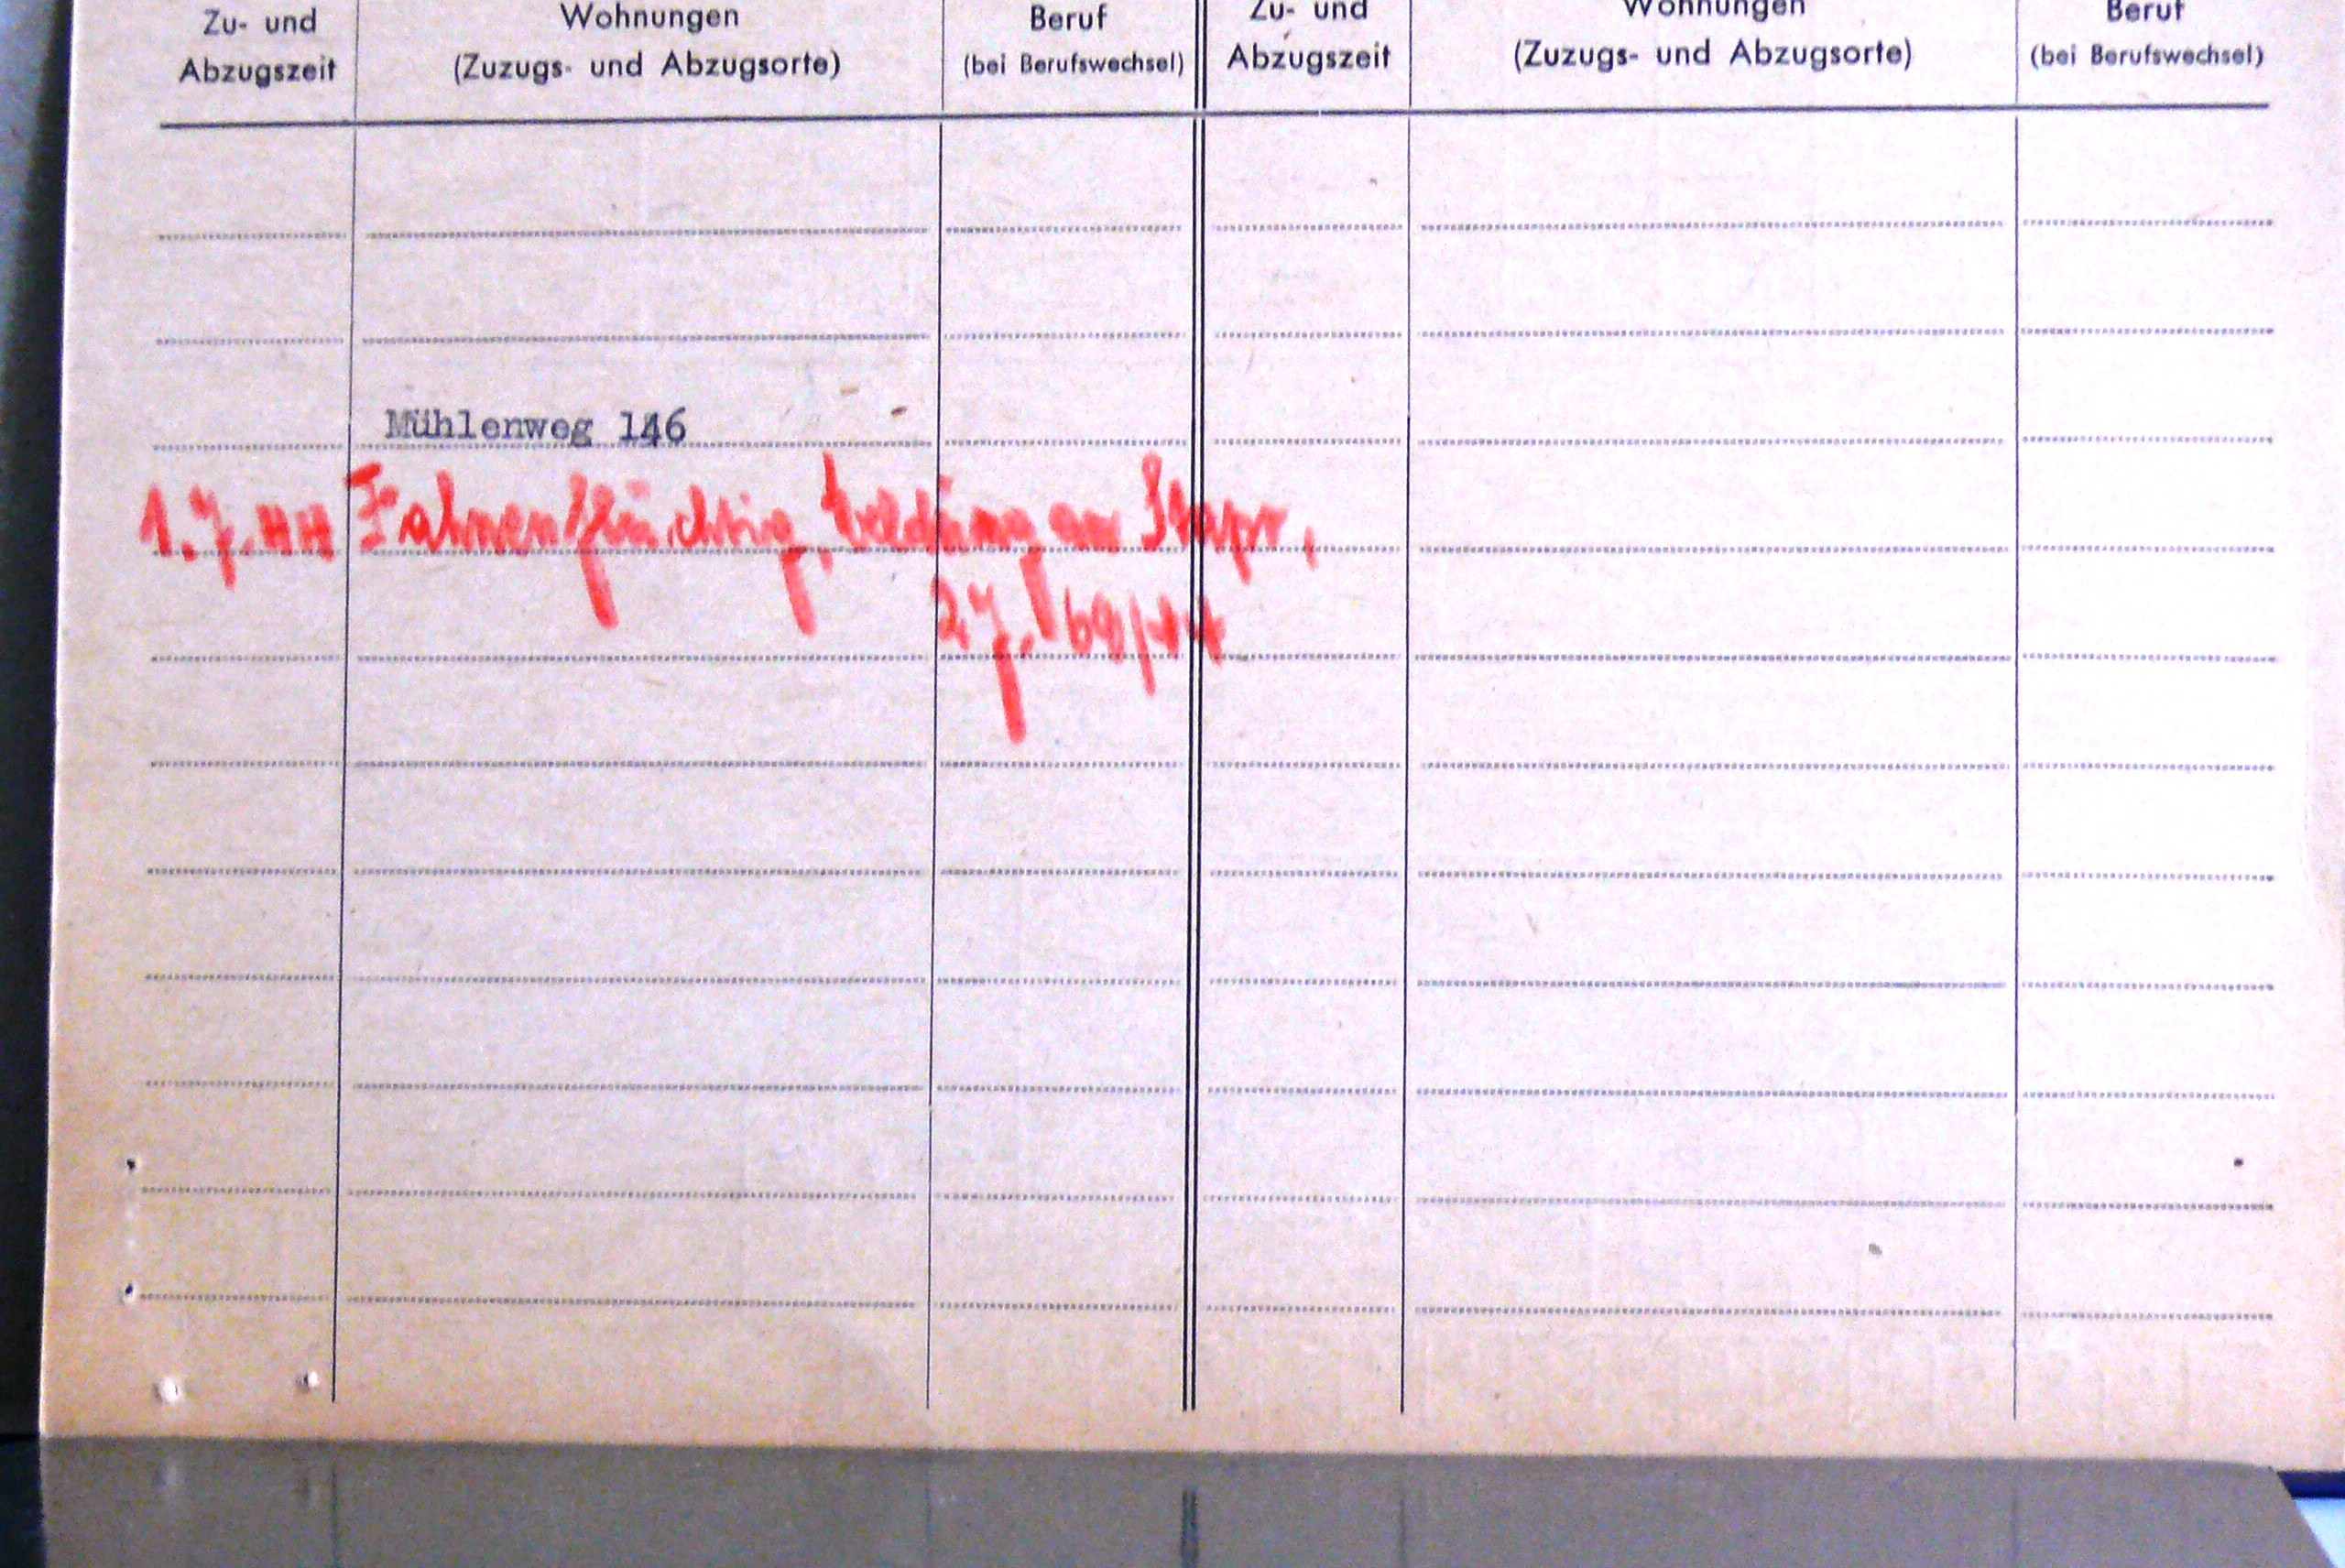 Zu- und Abzugszeit
Wohnungen (Zuzugs- und Abzugsorte)
Beruf (bei Berufswechsel)
Zu- und Abzugszeit
Wohnungen (Zuzugs- und Abzugsorte)
Beruf (bei Berufswechsel)
Mühlenweg 146
1.7.44 Fahnenflüchtig,